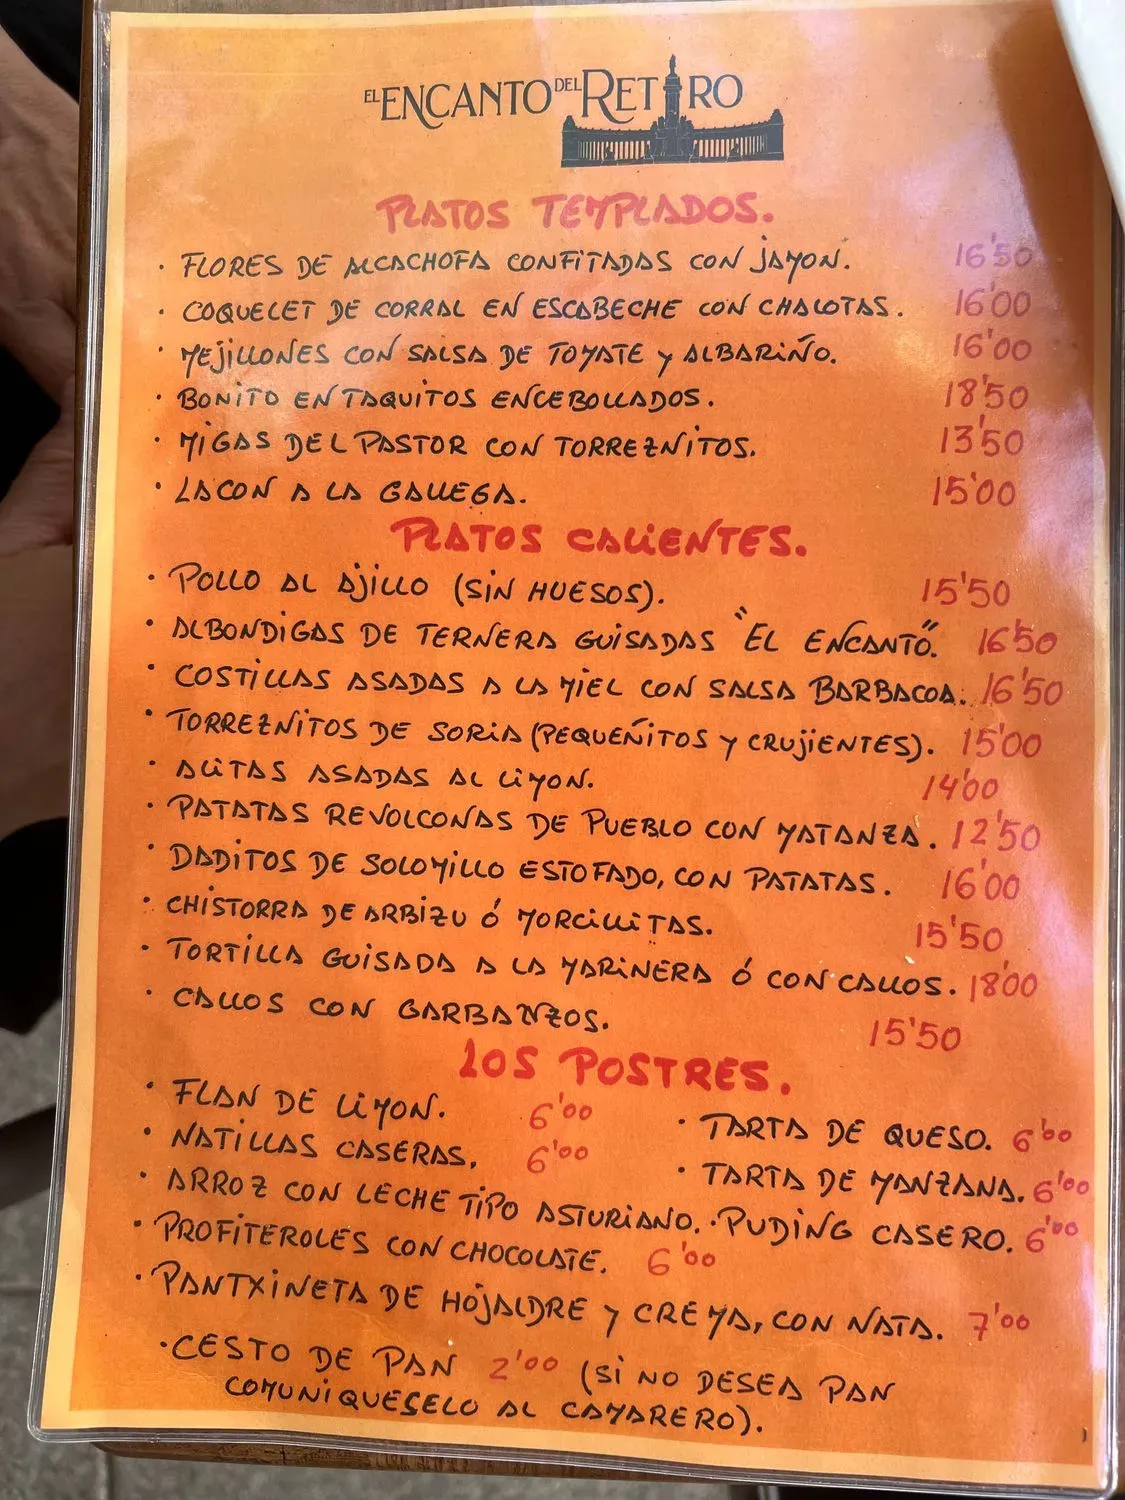 EL ENCANTO DEL RETIRO
PLATOS TEMPLADOS.
· FLORES DE ALCACHOFA CONFITADAS CON JAMON. 16'50
· COQUELET DE CORRAL EN ESCABECHE CON CHALOTAS. 16'00
· MEJILLONES CON SALSA DE TOMATE Y ALBARIÑO. 16'00
· BONITO EN TAQUITOS ENCEBOLLADOS. 18'50
· MIGAS DEL PASTOR CON TORREZNITOS. 13'50
· LACON A LA GALLEGA. 15'00
PLATOS CALIENTES.
· POLLO AL AJILLO (SIN HUESOS). 15'50
· ALBONDIGAS DE TERNERA GUISADAS "EL ENCANTO". 16'50
· COSTILLAS ASADAS A LA MIEL CON SALSA BARBACOA. 16'50
· TORREZNITOS DE SORIA (PEQUEÑITOS Y CRUJIENTES). 15'00
· ALITAS ASADAS AL LIMON. 14'00
· PATATAS REVOLCONAS DE PUEBLO CON MATANZA. 12'50
· DADITOS DE SOLOMILLO ESTOFADO, CON PATATAS. 16'00
· CHISTORRA DE ARBIZU Ó MORCILLITAS. 15'50
· TORTILLA GUISADA A LA MARINERA Ó CON CALLOS. 18'00
· CALLOS CON GARBANZOS. 15'50
LOS POSTRES.
· FLAN DE LIMON. 6'00 · TARTA DE QUESO. 6'00
· NATILLAS CASERAS. 6'00 · TARTA DE MANZANA. 6'00
· ARROZ CON LECHE TIPO ASTURIANO. · PUDING CASERO. 6'00
· PROFITEROLES CON CHOCOLATE. 6'00
· PANTXINETA DE HOJALDRE Y CREMA, CON NATA. 7'00
· CESTO DE PAN 2'00 (SI NO DESEA PAN
COMUNIQUESELO AL CAMARERO).